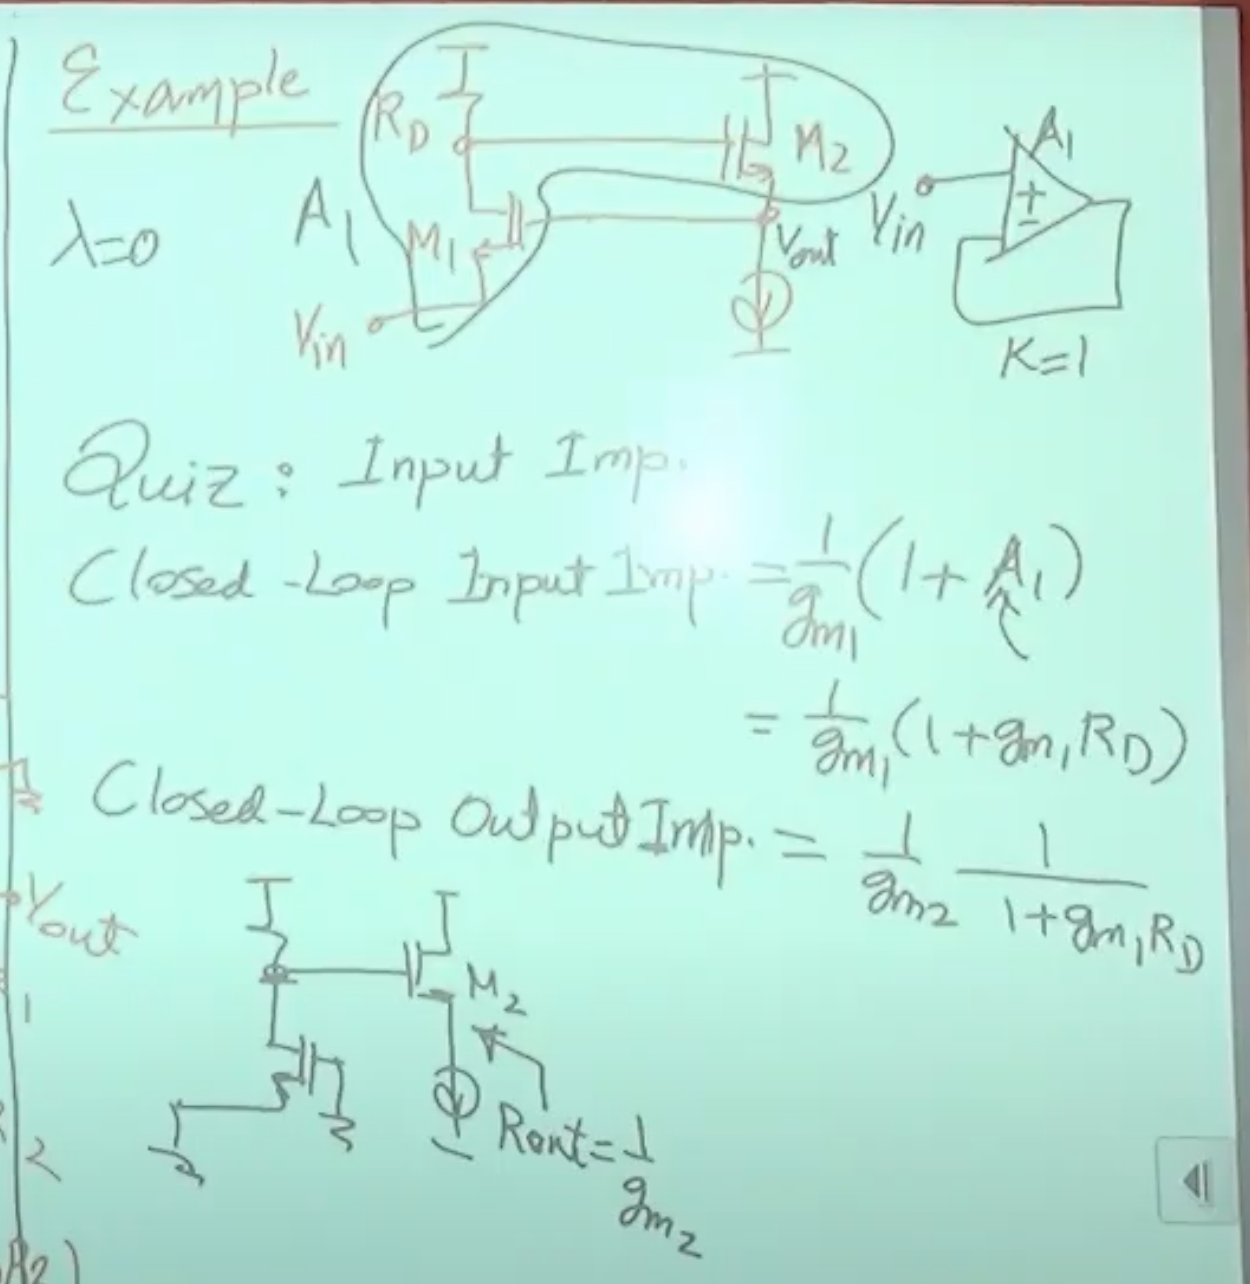 Example
R_D
M_2
A_1
λ=0
A_1
M_1
V_in
V_out
V_in
+
-
K=1
Quiz: Input Imp.
Closed-Loop Input Imp. = 1/g_m1 (1 + A_1)
= 1/g_m1 (1 + g_m1 R_D)
Closed-Loop Output Imp. = 1/g_m2 1/(1 + g_m1 R_D)
V_out
M_2
1
R_out = 1/g_m2
2
A_2)